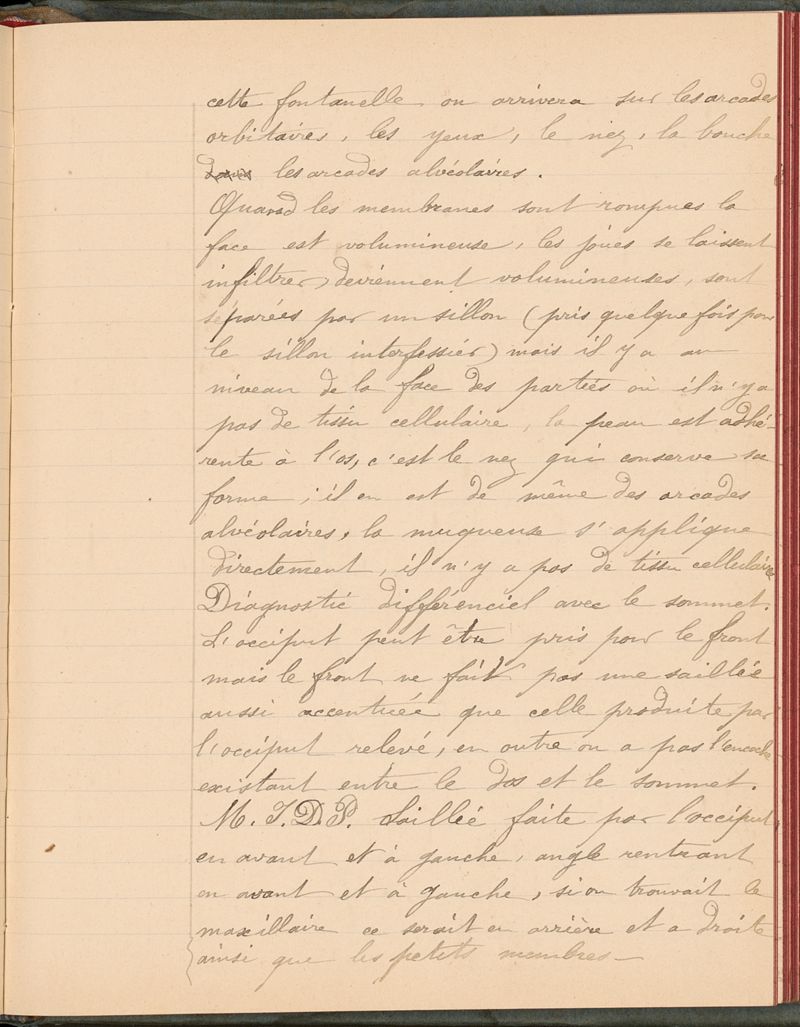 cette fontanelle on arrivera sur les arcades
orbitaires, les yeux, le nez, la bouche
les arcades alvéolaires.
Quand les membranes sont rompues la
face est volumineuse, les joues se laissent
infiltrer, deviennent volumineuses, sont
séparées par un sillon (pris quelque fois pour
le sillon interfessier) mais il y a au
niveau de la face des parties où il n'y a
pas de tissu cellulaire, la peau est adhé-
rente à l'os, c'est le nez qui conserve sa
forme ; il en est de même des arcades
alvéolaires, la muqueuse s'applique
directement, il n'y a pas de tissu cellulaire
Diagnostic différenciel avec le sommet.
L'occiput peut être pris pour le front
mais le front ne fait pas une saillée
aussi accentuée que celle produite par
l'occiput relevé, en outre on a pas l'encoche
existant entre le dos et le sommet.
M.I.D.P. Saillée faite par l'occiput
en avant et à gauche, angle rentrant
en avant et à gauche, si on trouvait le
maxillaire ce serait en arrière et a droite
ainsi que les petits membres_